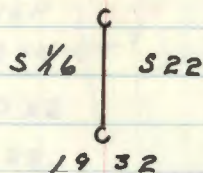 C
S 1/6 S 22
C
19 32